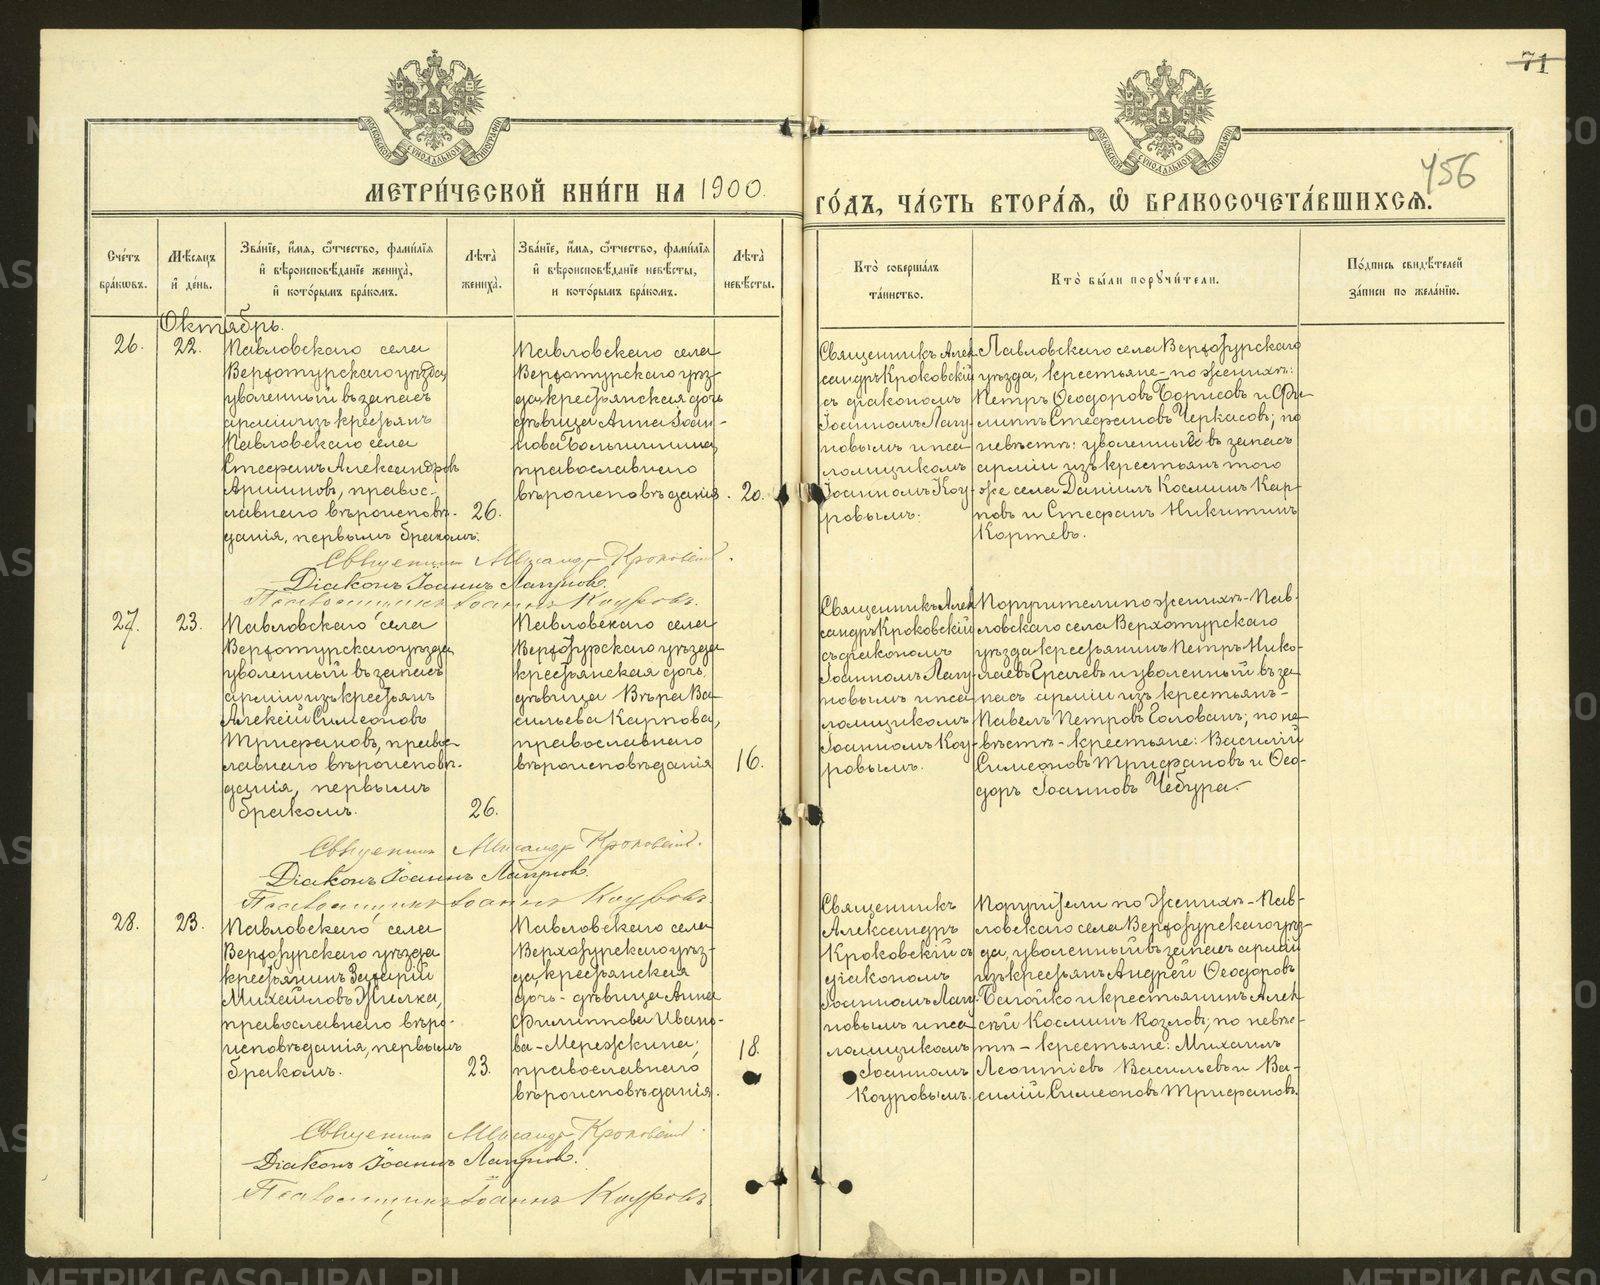 71
456
МЕТРИ́ЧЕСКОЙ КНИ́ГИ НА 1900.
ГО́ДЪ, ЧА́СТЬ ВТОРА́Ѧ, Ѽ БРАКОСОЧЕТА́ВШИХСѦ.
МОСКОВСКОЙ СѴНОДАЛЬНОЙ ТИПОГРАФІИ
МОСКОВСКОЙ СѴНОДАЛЬНОЙ ТИПОГРАФІИ
Сче́тъ
бра́кѡвъ.
Мѣ́сѧцъ
и҆ де́нь.
Зва́нїе, и҆́мѧ, ѻ҆́тчество, фами́лїѧ
и҆ вѣроисповѣ́данїе жениха̀,
и҆ кото́рымъ бра́комъ.
Лѣ́та̀
жениха̀.
Зва́нїе, и҆́мѧ, ѻ҆́тчество, фами́лїѧ
и҆ вѣроисповѣ́данїе невѣ́сты,
и кото́рымъ бра́комъ.
Лѣ́та̀
невѣ́сты.
Кто̀ соверша́лъ
та́инство.
Кто̀ бы́ли порꙋчи́тели.
По́дпись свидѣ́телей
за́писи по жела́нїю.
Октябрь.
26.
22.
Павловскаго села
Верхотурскаго уѣзда,
уволенный въ запасъ
арміи изъ крестьянъ
Павловскаго села
Стефанъ Александровъ
Аришовъ, правос-
лавнаго вѣроисповѣ-
данія, первымъ бракомъ.
26.
Павловскаго села
Верхотурскаго уѣз-
да, крестьянская дочь
дѣвица Анна Іоан-
нова Большинина,
православнаго
вѣроисповѣданія.
20.
Священникъ Алек-
сандръ Кроковскій
съ діакономъ
Іоанномъ Лагу-
новымъ и пса-
ломщикомъ
Іоанномъ Коу-
ровымъ.
Павловскаго села Верхотурскаго
уѣзда, крестьяне - по женихѣ:
Петръ Ѳеодоровъ Борисовъ и Фи-
липпъ Стефановъ Черкасовъ; по
невѣстѣ: уволенный въ запасъ
арміи изъ крестьянъ того
же села Даніилъ Космичъ Кар-
повъ и Стефанъ Никитинъ
Картевъ.
Священникъ Александръ Кроковскій.
Діаконъ Іоаннъ Лагуновъ.
Псаломщикъ Іоаннъ Коуровъ.
27.
23.
Павловскаго села
Верхотурскаго уѣзда
уволенный въ запасъ
арміи изъ крестьянъ
Алексій Симеоновъ
Трифановъ, правос-
лавнаго вѣроисповѣ-
данія, первымъ
бракомъ.
26.
Павловскаго села
Верхотурскаго уѣзда
крестьянская дочь,
дѣвица Вѣра Ва-
сильева Карпова,
православнаго
вѣроисповѣданія
16.
Священникъ Алек-
сандръ Кроковскій
съ діакономъ
Іоанномъ Лагу-
новымъ и пса-
ломщикомъ
Іоанномъ Коу-
ровымъ.
Поручители по женихѣ - Пав-
ловскаго села Верхотурскаго
уѣзда крестьянинъ Петръ Нико-
лаевъ Грачевъ и уволенный въ за-
пасъ арміи изъ крестьянъ -
Павелъ Петровъ Голованъ; по не-
вѣстѣ - крестьяне: Василій
Симеоновъ Трифановъ и Ѳео-
доръ Іоанновъ Чебура.
Священникъ Александръ Кроковскій.
Діаконъ Іоаннъ Лагуновъ.
Псаломщикъ Іоаннъ Коуровъ.
28.
23.
Павловскаго села
Верхотурскаго уѣзда
крестьянинъ Захарій
Михаиловъ Жилка,
православнаго вѣро-
исповѣданія, первымъ
бракомъ.
23.
Павловскаго села
Верхотурскаго уѣз-
да, крестьянская
дочь - дѣвица Анна
Филиппова Ивано-
ва-Мережкина,
православнаго
вѣроисповѣданія.
18.
Священникъ
Александръ
Кроковскій съ
діакономъ
Іоанномъ Лагу-
новымъ и пса-
ломщикомъ
Іоанномъ
Коуровымъ.
Поручители по женихѣ - Пав-
ловскаго села Верхотурскаго уѣз-
да, уволенный въ запасъ арміи
изъ крестьянъ Андрей Ѳеодоровъ
Багойко и крестьянинъ Алек-
сѣй Космичъ Козловъ; по невѣс-
тѣ - крестьяне: Михаилъ
Леонтіевъ Васильевъ и Ва-
силій Симеоновъ Трифановъ.
Священникъ Александръ Кроковскій.
Діаконъ Іоаннъ Лагуновъ.
Псаломщикъ Іоаннъ Коуровъ.
METRIKI.GASO-URAL.RU